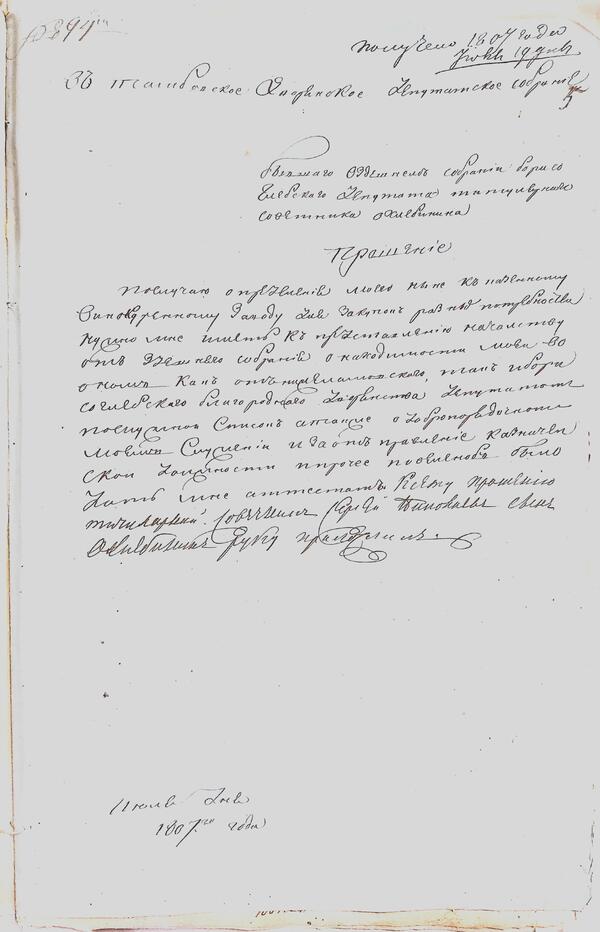 № 894
получено 1807 года
Июля 19 дня
Въ тамбовское дворянское депутатское собрание
бывшаго въ здешнемъ собранiи борисо
глебскаго депутата титулярнаго
советника охлебинина
Прошенiе
послучаю определенiя моего ныне къ казенному
Винокуренному заводу для закупок разныхъ потребностей
нужно мне иметь къ представленiю начальству
отъ здешняго собранiя о находимости моей во
ономъ какъ отъ, такъ и бори
соглебскаго благороднаго дворянства депутатомъ
послужной Списокъ а также о добропорядочномъ
моемъ Служенiи и за отъ правленiе казначей
ской должности и прочее повелено бъ было
дать мне аттестатъ Ксему прошенiю
титулярный Советникъ Сергей сынъ
Охлебининъ руку приложилъ.
Июля дня
1807го года